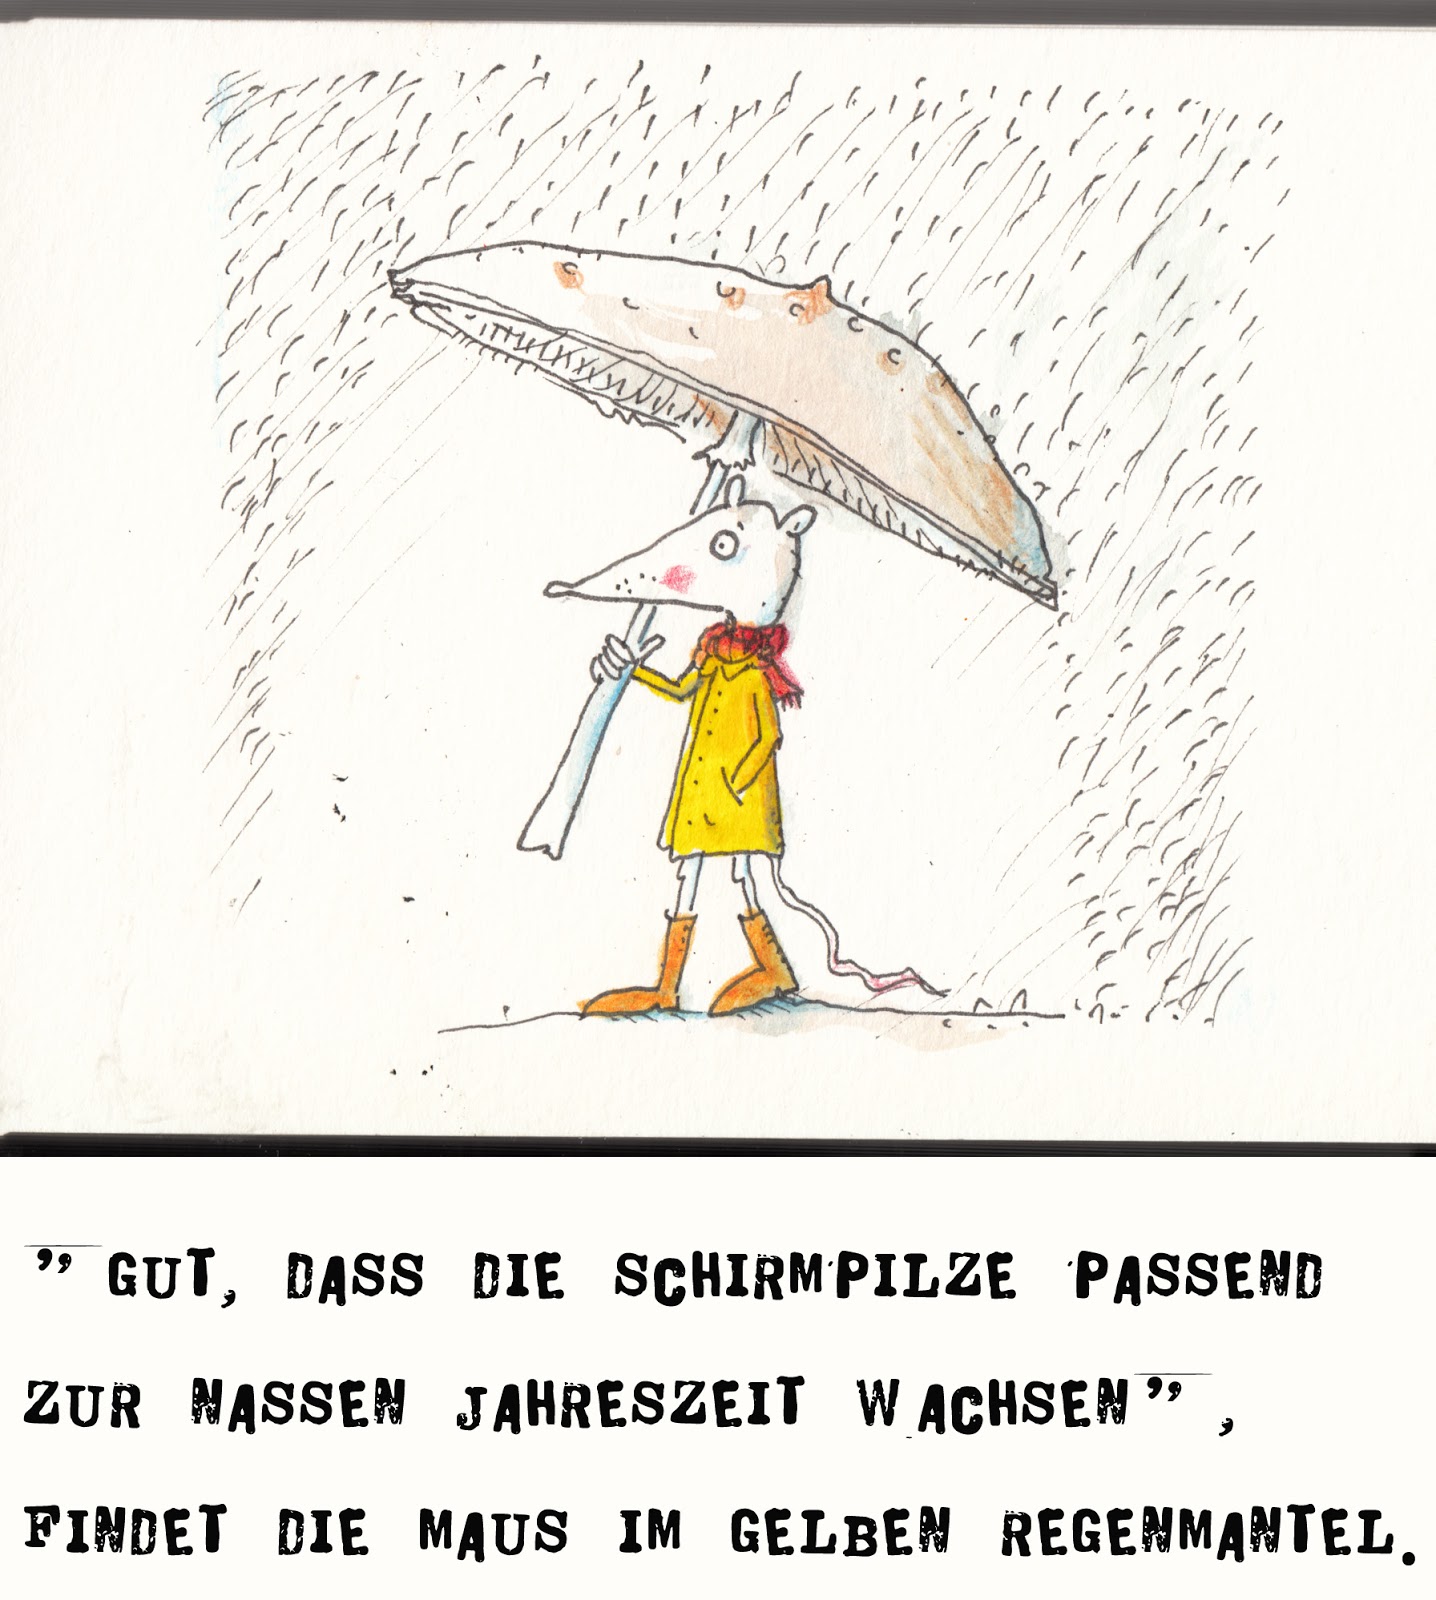 ” GUT, DASS DIE SCHIRMPILZE PASSEND
ZUR NASSEN JAHRESZEIT WACHSEN”,
FINDET DIE MAUS IM GELBEN REGENMANTEL.